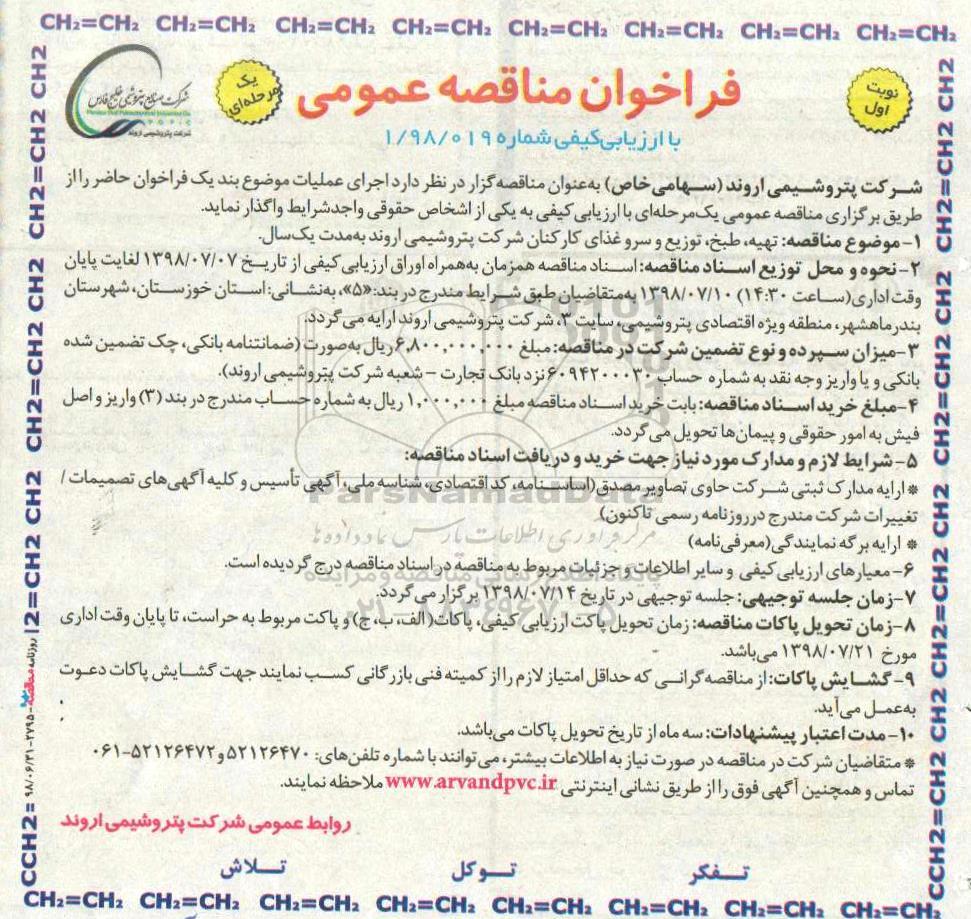 CH2=CH2 CH2=CH2 CH2=CH2 CH2=CH2 CH2=CH2 CH2=CH2 CH2=CH2 CH2=CH2
شرکت صنایع پتروشیمی خلیج فارس
Persian Gulf Petrochemical Industries Co.
شرکت پتروشیمی اروند
یک مرحله‌ای
فراخوان مناقصه عمومی
نوبت اول
با ارزیابی کیفی شماره ۱/۹۸/۰۱۹
شرکت پتروشیمی اروند (سهامی خاص) به‌عنوان مناقصه‌گزار در نظر دارد اجرای عملیات موضوع بند یک فراخوان حاضر را از
طریق برگزاری مناقصه عمومی یک‌مرحله‌ای با ارزیابی کیفی به یکی از اشخاص حقوقی واجدشرایط واگذار نماید.
۱-موضوع مناقصه: تهیه، طبخ، توزیع و سرو غذای کارکنان شرکت پتروشیمی اروند به‌مدت یک‌سال.
۲-نحوه و محل توزیع اسناد مناقصه: اسناد مناقصه همزمان به‌همراه اوراق ارزیابی کیفی از تاریخ ۱۳۹۸/۰۷/۰۷ لغایت پایان
وقت اداری(ساعت ۱۴:۳۰) ۱۳۹۸/۰۷/۱۰ به‌متقاضیان طبق شرایط مندرج در بند:«۵»، به‌نشانی: استان خوزستان، شهرستان
بندرماهشهر، منطقه ویژه اقتصادی پتروشیمی، سایت ۳، شرکت پتروشیمی اروند ارایه می‌گردد.
۳-میزان سپرده و نوع تضمین شرکت در مناقصه: مبلغ ۶,۸۰۰,۰۰۰,۰۰۰ ریال به‌صورت (ضمانتنامه بانکی، چک تضمین شده
بانکی و یا واریز وجه نقد به شماره حساب ۶۰۹۴۲۰۰۰۳۰ نزد بانک تجارت - شعبه شرکت پتروشیمی اروند).
۴-مبلغ خرید اسناد مناقصه: بابت خرید اسناد مناقصه مبلغ ۱,۰۰۰,۰۰۰ ریال به شماره حساب مندرج در بند (۳) واریز و اصل
فیش به امور حقوقی و پیمان‌ها تحویل می‌گردد.
۵-شرایط لازم و مدارک مورد نیاز جهت خرید و دریافت اسناد مناقصه:
* ارایه مدارک ثبتی شرکت حاوی تصاویر مصدق (اساسنامه، کد اقتصادی، شناسه ملی، آگهی تأسیس و کلیه آگهی‌های تصمیمات /
تغییرات شرکت مندرج درروزنامه رسمی تاکنون)
* ارایه برگه نمایندگی(معرفی‌نامه)
۶-معیارهای ارزیابی کیفی و سایر اطلاعات و جزئیات مربوط به مناقصه در اسناد مناقصه درج گردیده است.
۷-زمان جلسه توجیهی: جلسه توجیهی در تاریخ ۱۳۹۸/۰۷/۱۴ برگزار می‌گردد.
۸-زمان تحویل پاکات مناقصه: زمان تحویل پاکت ارزیابی کیفی، پاکات( الف، ب، ج) و پاکت مربوط به حراست، تا پایان وقت اداری
مورخ ۱۳۹۸/۰۷/۲۱ می‌باشد.
۹-گشایش پاکات: از مناقصه‌گرانی که حداقل امتیاز لازم را از کمیته فنی بازرگانی کسب نمایند جهت گشایش پاکات دعوت
به‌عمل می‌آید.
۱۰-مدت اعتبار پیشنهادات: سه ماه از تاریخ تحویل پاکات می‌باشد.
* متقاضیان شرکت در مناقصه در صورت نیاز به اطلاعات بیشتر، می‌توانند با شماره تلفن‌های: ۵۲۱۲۶۴۷۰ و ۵۲۱۲۶۴۷۲-۰۶۱
تماس و همچنین آگهی فوق را از طریق نشانی اینترنتی www.arvandpvc.ir ملاحظه نمایند.
روابط عمومی شرکت پتروشیمی اروند
تفکر توکل تلاش
CH2=CH2 CH2=CH2 CH2=CH2 CH2=CH2 CH2=CH2 CH2=CH2 CH2=CH2 CH2=CH2
CCH2= ۹۸/۰۶/۳۱-۲۷۹۵- روزنامه مناقصه 2=CH2 CH2=CH2 CH2=CH2 CH2=CH2 CH2
CCH2=CH2 CH2=CH2 CH2=CH2 CH2=CH2 CH2=CH2 CH2
ParsNamadData
مرکز فرآوری اطلاعات پارس نماد داده‌ها
پایگاه اطلاع رسانی مناقصه و مزایده